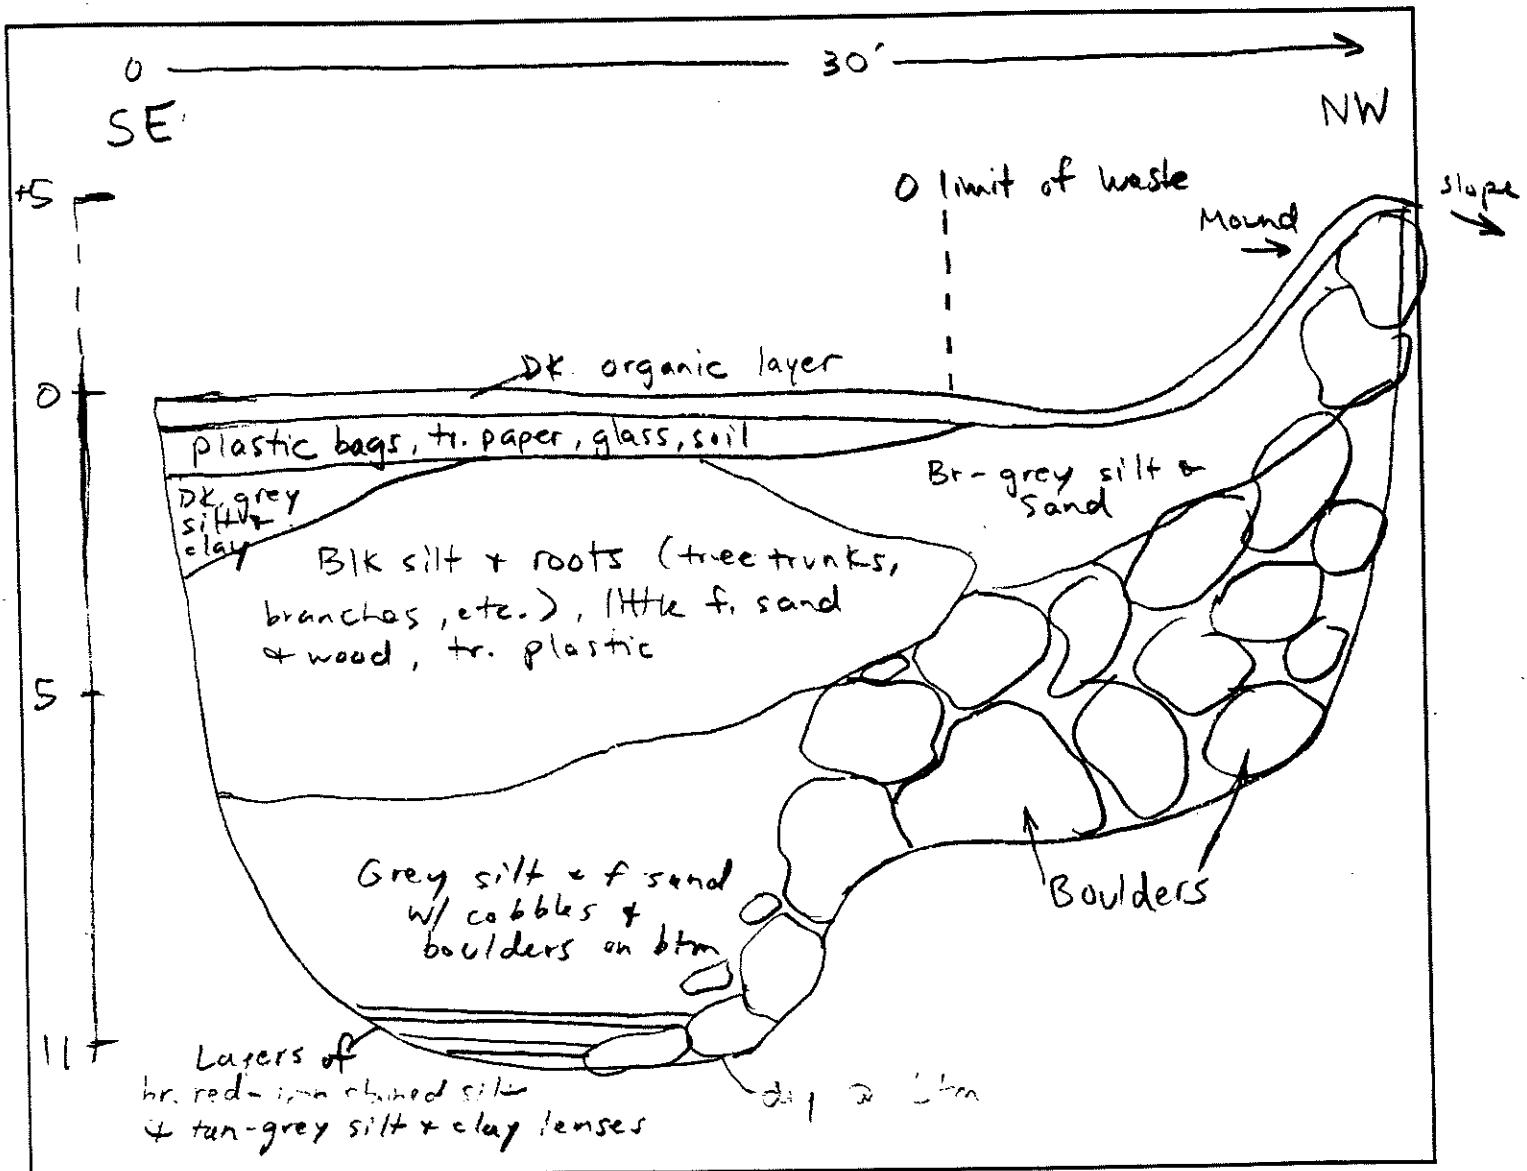 0 30'
SE
NW
+5
0 limit of waste
slope
Mound
0
DK. organic layer
plastic bags, tr. paper, glass, soil
Br-grey silt &
sand
DK. grey
silt &
clay
Blk silt & roots (tree trunks,
branches, etc.), little f. sand
& wood, tr. plastic
5
Grey silt & f sand
w/ cobbles &
boulders on btm
Boulders
11
Layers of
br. red-iron stained silt
& tan-grey silt & clay lenses
dry @ btm